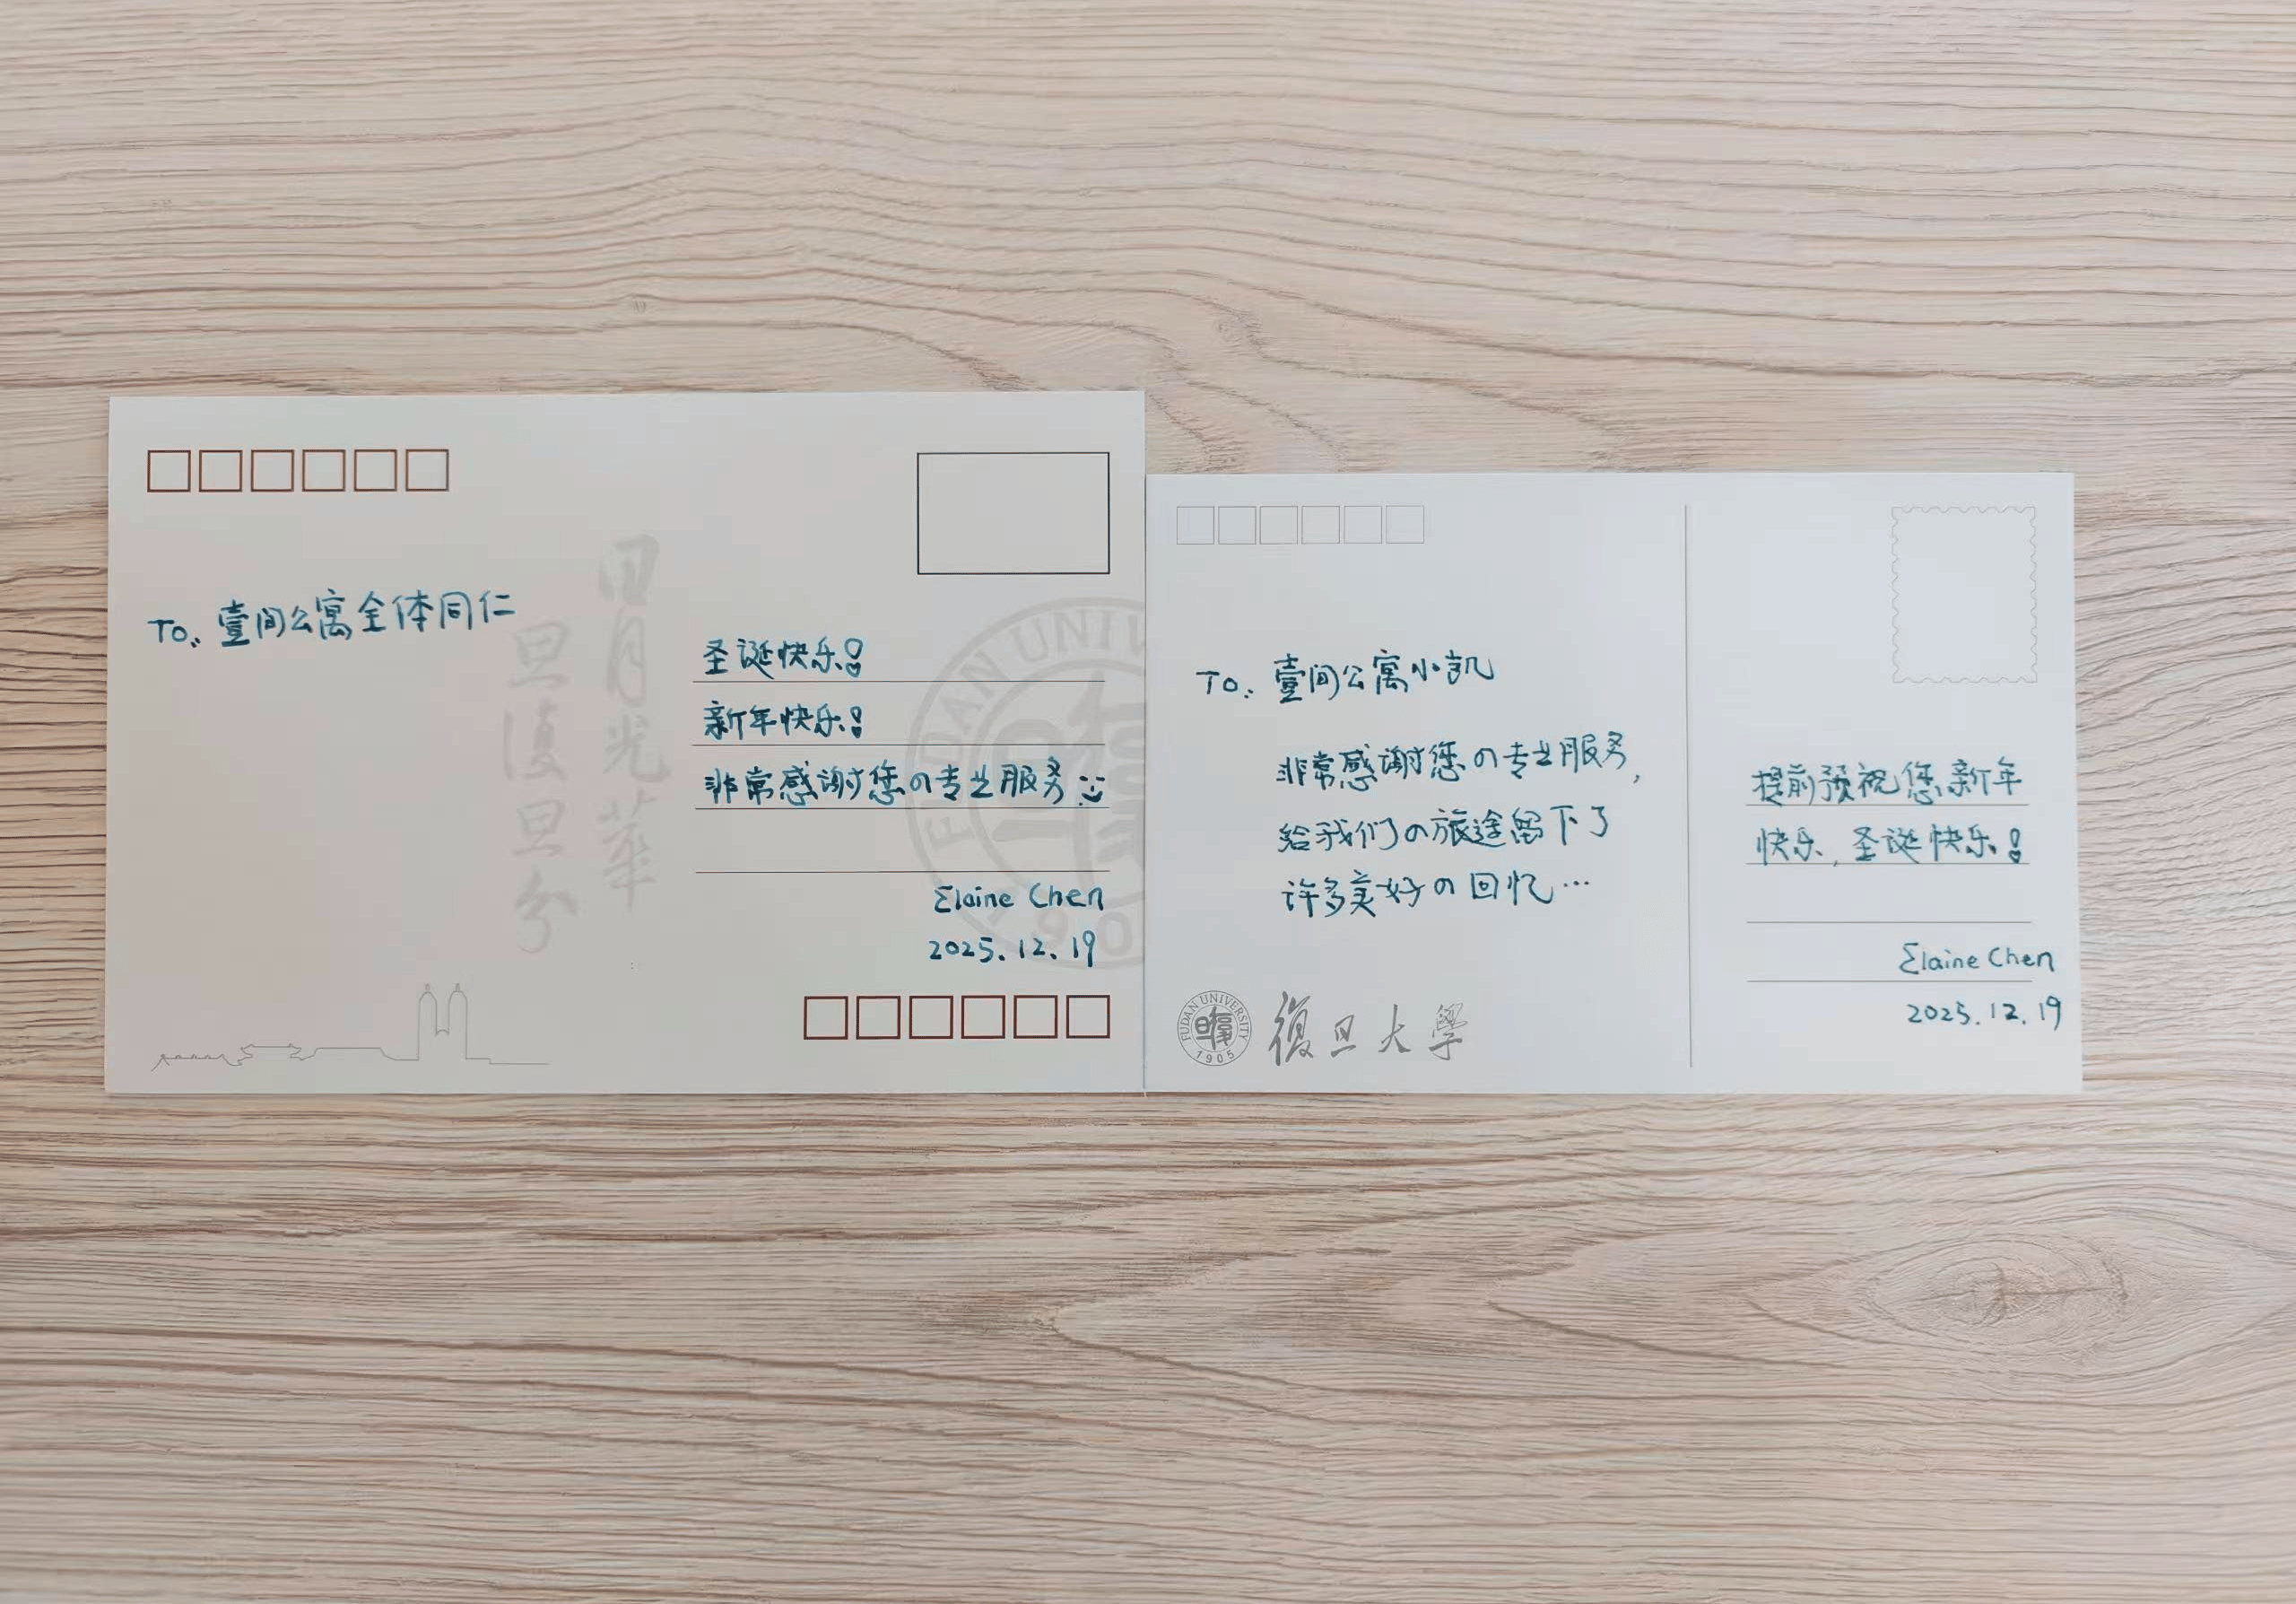 To: 壹间公寓全体同仁
日月光華
旦復旦兮
圣诞快乐!
新年快乐!
非常感谢您の专业服务:)
Elaine Chen
2025.12.19
FUDAN UNIV
190
To: 壹间公寓小凯
非常感谢您の专业服务,
给我们の旅途留下了
许多美好の回忆…
提前预祝您新年
快乐,圣诞快乐!
Elaine Chen
2025.12.19
FUDAN UNIVERSITY
1905
復旦大學